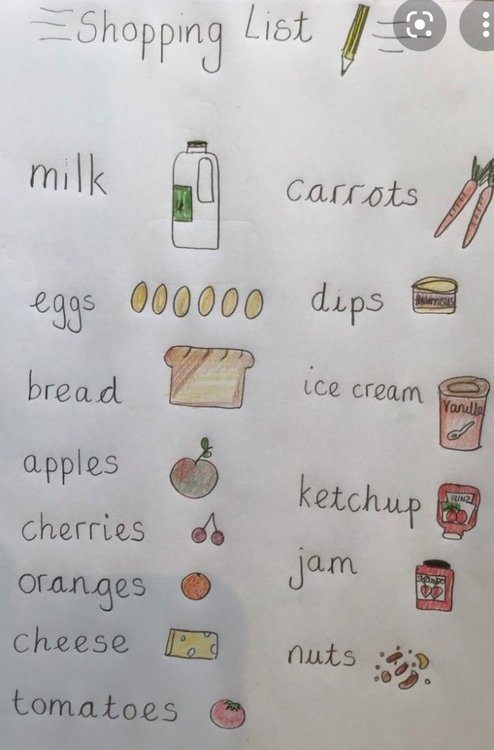 Shopping List
milk
eggs
bread
apples
cherries
oranges
cheese
tomatoes
carrots
dips
ice cream
Vanilla
ketchup
HEINZ
jam
nuts